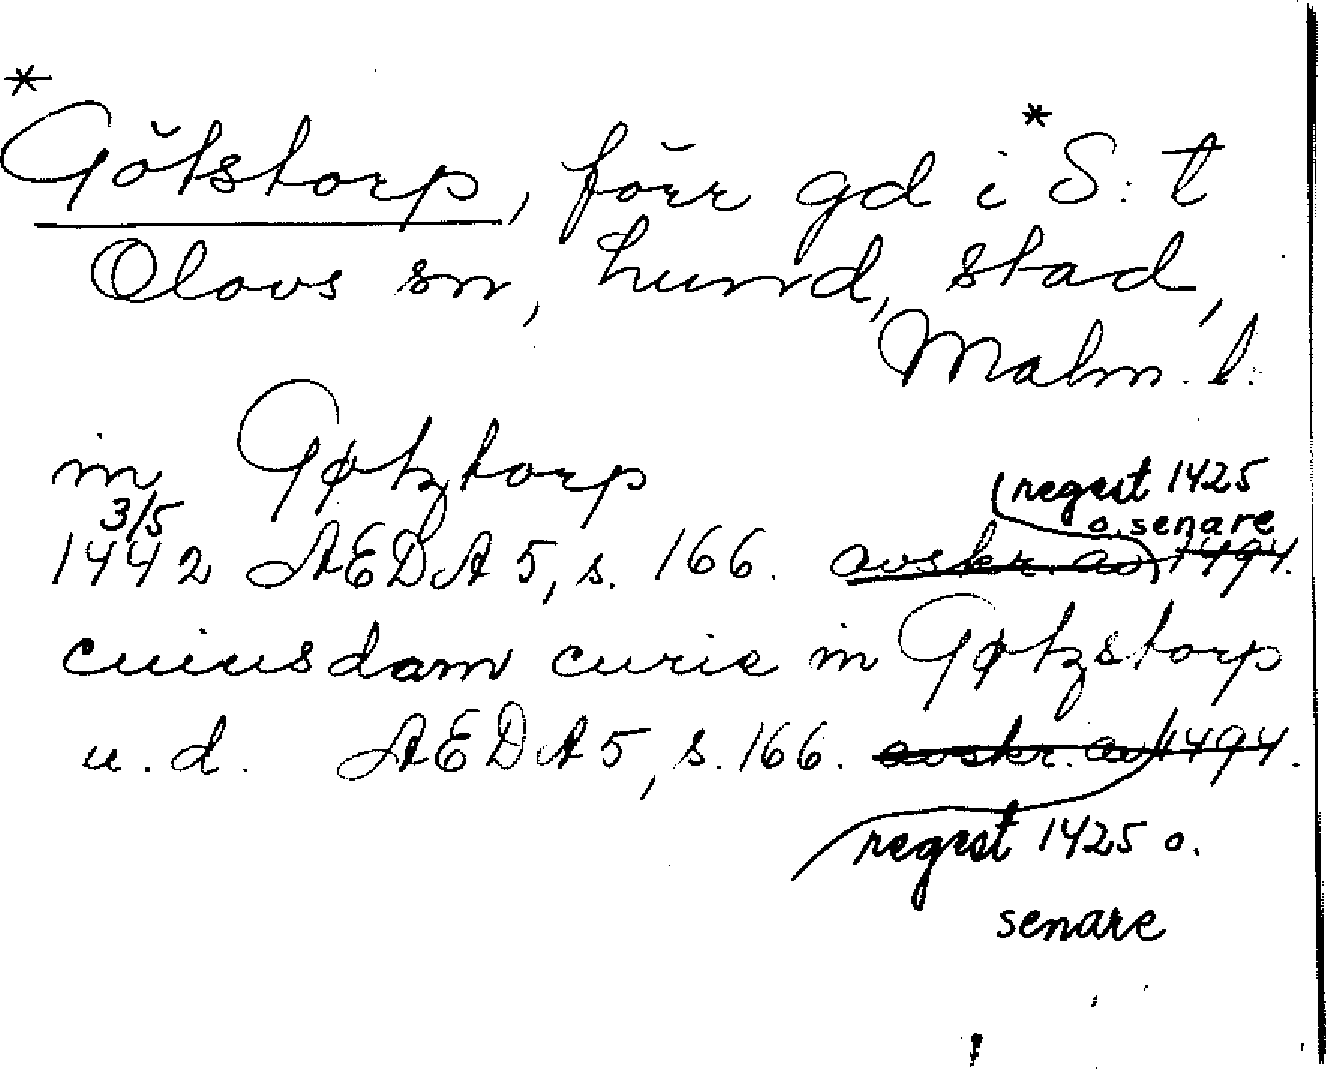 *Götstorp, förr gd i *S:t
Olovs sn, hund, stad,
Malm. l.
in Gøtztorp
3/5 regest 1425
o. senare
1442 AEDA 5, s. 166. avskr. av 1494.
cuiusdam curie in Gøtzstorp
u. d. AEDA 5, s. 166. avskr. av 1494.
regest 1425 o.
senare